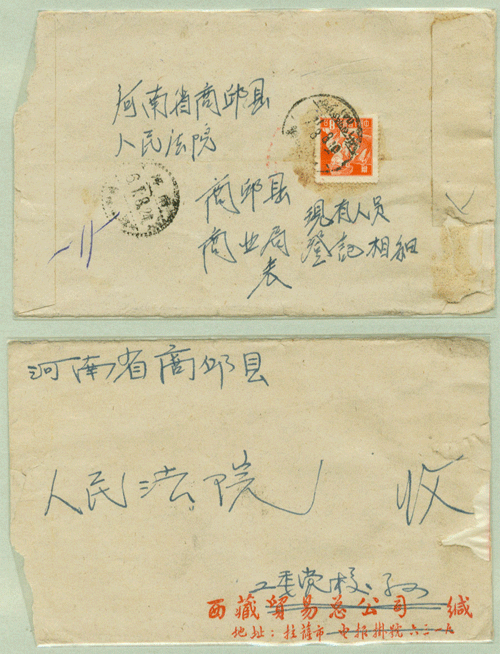 河南省商邱县
人民法院
商邱县 现有人员
商业局 登記相細
表
河南省商邱县
人民法院 收
工委党校
西藏貿易总公司 缄
地址：拉薩市 电报掛號六六一八